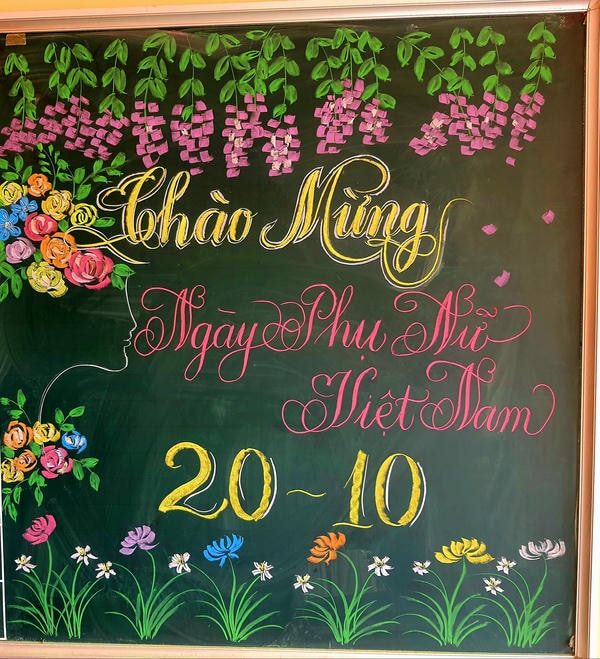 Chào Mừng
Ngày Phụ Nữ
Việt Nam
20 ~ 10